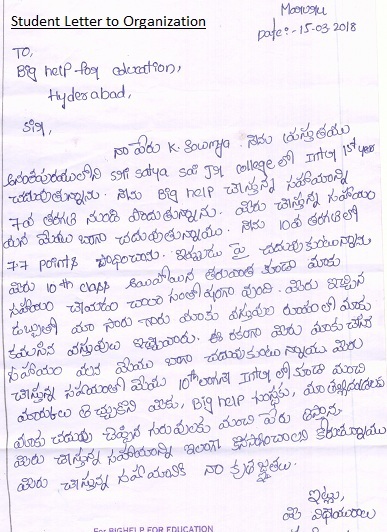 Student Letter to Organization
Date:- 15-03-2018
TO,
Big help for education,
Hyderabad,
sir,
నా పేరు K. Sowmya. నేను ప్రస్తుతము
అనంతపురములోని sri satya sai Jr college లో Inter 1st year
చదువుతున్నాను. నేను Big help చేస్తున్న సహాయాన్ని
7వ తరగతి నుండి పొందుతున్నాను. మీరు చేస్తున్న సహాయం
వలన మేము బాగా చదువుతున్నాము. నేను 10వ తరగతిలో
7.7 points సాధించాను. ఇప్పుడు పై చదువుకుంటున్నాను
మీరు 10th class అయిపోయిన తరువాత కూడా మాకు
సహాయం చేయడం చాలా సంతోషంగా వుంది. మీరు ఇచ్చిన
డబ్బుతో మా సారు గారు మాకు వస్తువుల రూపంలో మాకు
కావలసిన వస్తువులు ఇచ్చినారు. ఈ రకంగా మీరు మాకు చేసిన
సహాయం వలన మేము బాగా చదువుకుంటున్నాము మీరు
చేస్తున్న సహాయంతో మేము 10th లాగానే Inter లో కూడా మంచి
మార్కులు తెచ్చుకొని మీకు, Big help సంస్థకు, మా తల్లిదండ్రులకు
మాకు చదువు చెప్పిన గురువులకు మంచి పేరు తెస్తాను
మీరు చేస్తున్న సహాయాన్ని ఇలాగే కొనసాగించాలని కోరుతున్నాము
మీరు చేస్తున్న సహాయానికి నా కృతజ్ఞతలు.
ఇట్లు,
మీ విధేయురాలు
For BIGHELP FOR EDUCATION